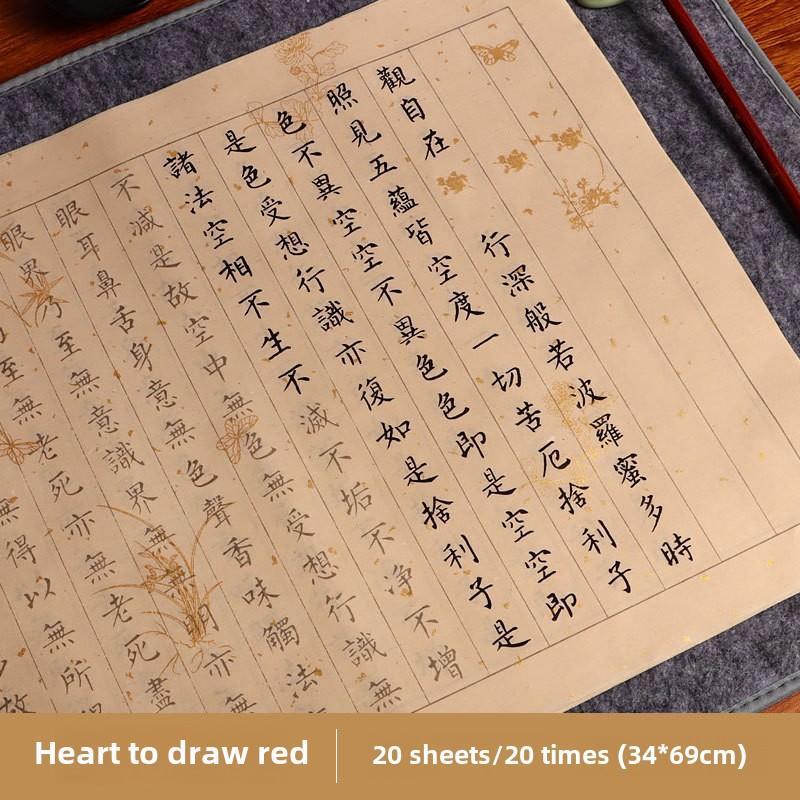 觀自在行深般若波羅蜜多時
照見五蘊皆空度一切苦厄捨利子
色不異空空不異色色即是空空即
是色受想行識亦復如是捨利子是
諸法空相不生不滅不垢不净不增
不減是故空中無色無受想行識無
眼耳鼻舌身意無色聲香味觸法
眼界乃至無意識界無無明亦無
至無老死亦無老死盡
無得以無所
故
Heart to draw red
20 sheets/20 times (34*69cm)